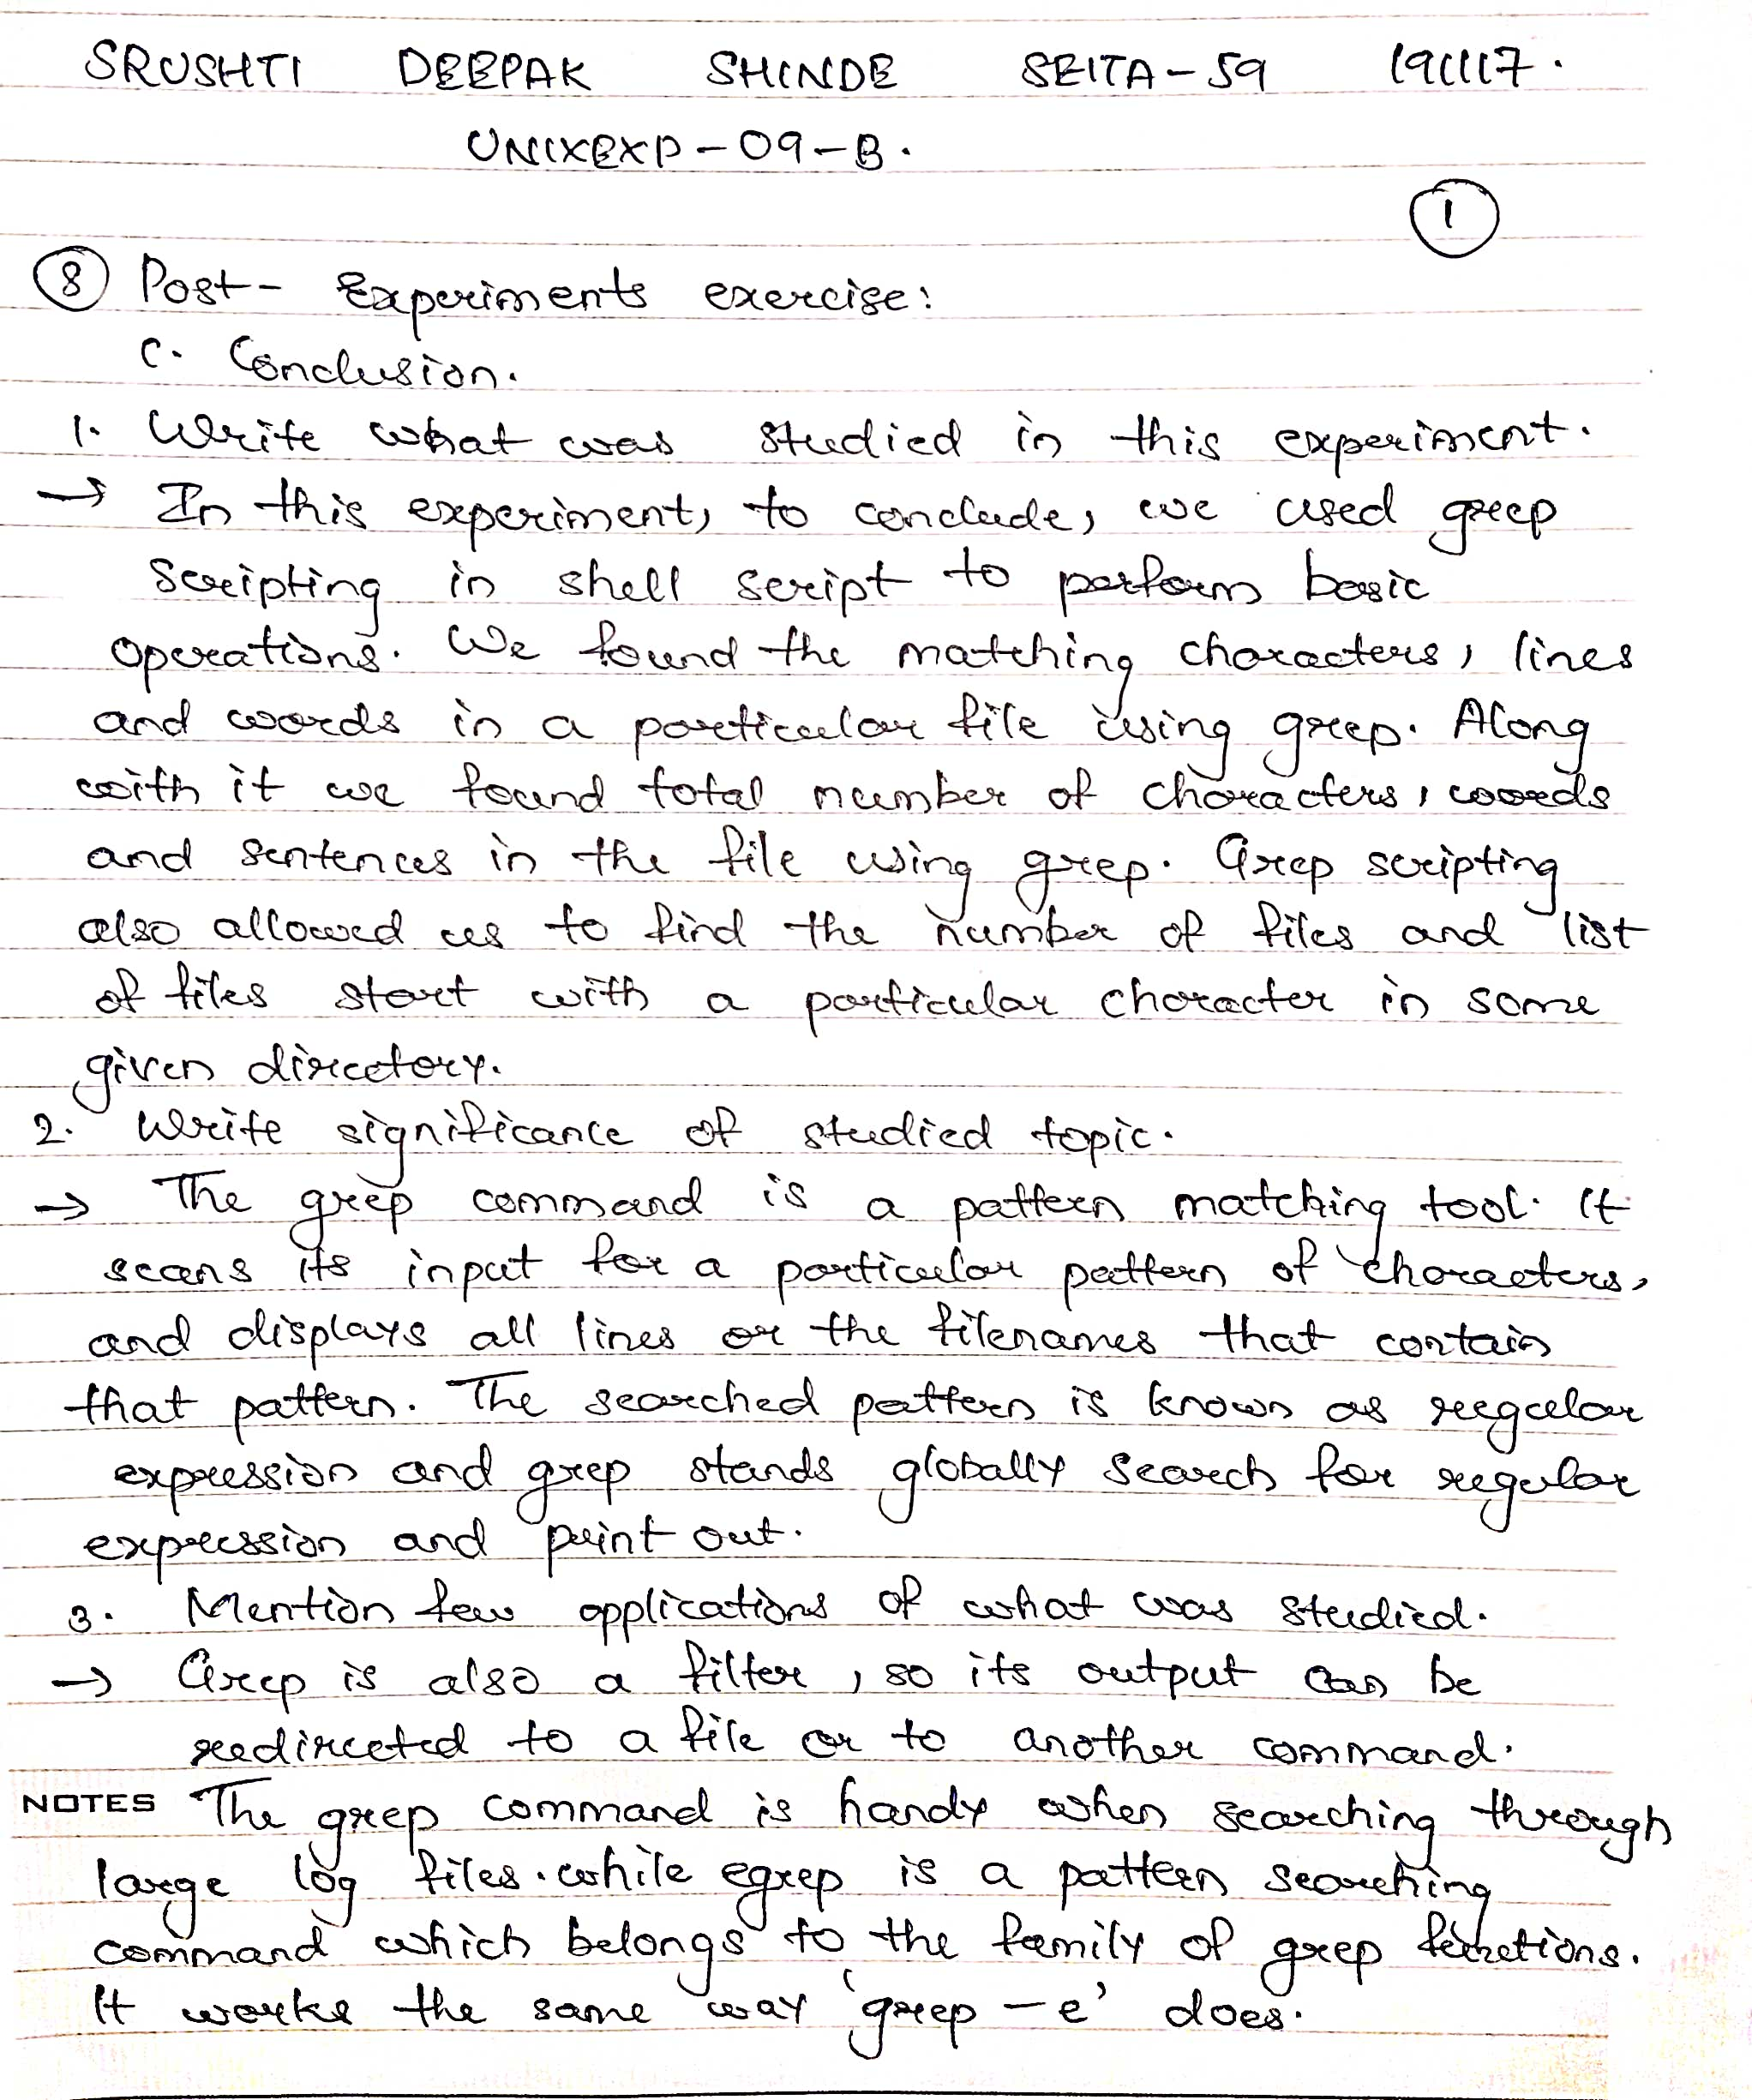 SRUSHTI DEEPAK SHINDE SEITA-59 191117.
UNIXEXP-09-B.
1
8 Post- Experiments exercise:
C. Conclusion.
1. Write what was studied in this experiment.
→ In this experiment, to conclude, we used grep
scripting in shell script to perform basic
operations. We found the matching characters, lines
and words in a particular file using grep. Along
with it we found total number of characters, words
and sentences in the file using grep. Grep scripting
also allowed us to find the number of files and list
of files start with a particular character in some
given directory.
2. Write significance of studied topic.
→ The grep command is a pattern matching tool. It
scans its input for a particular pattern of characters,
and displays all lines or the filenames that contain
that pattern. The searched pattern is known as regular
expression and grep stands globally search for regular
expression and print out.
3. Mention few applications of what was studied.
→ Grep is also a filter, so its output can be
redirected to a file or to another command.
NOTES The grep command is handy when searching through
large log files. while egrep is a pattern searching
command which belongs to the family of grep functions.
It works the same way 'grep -e' does.